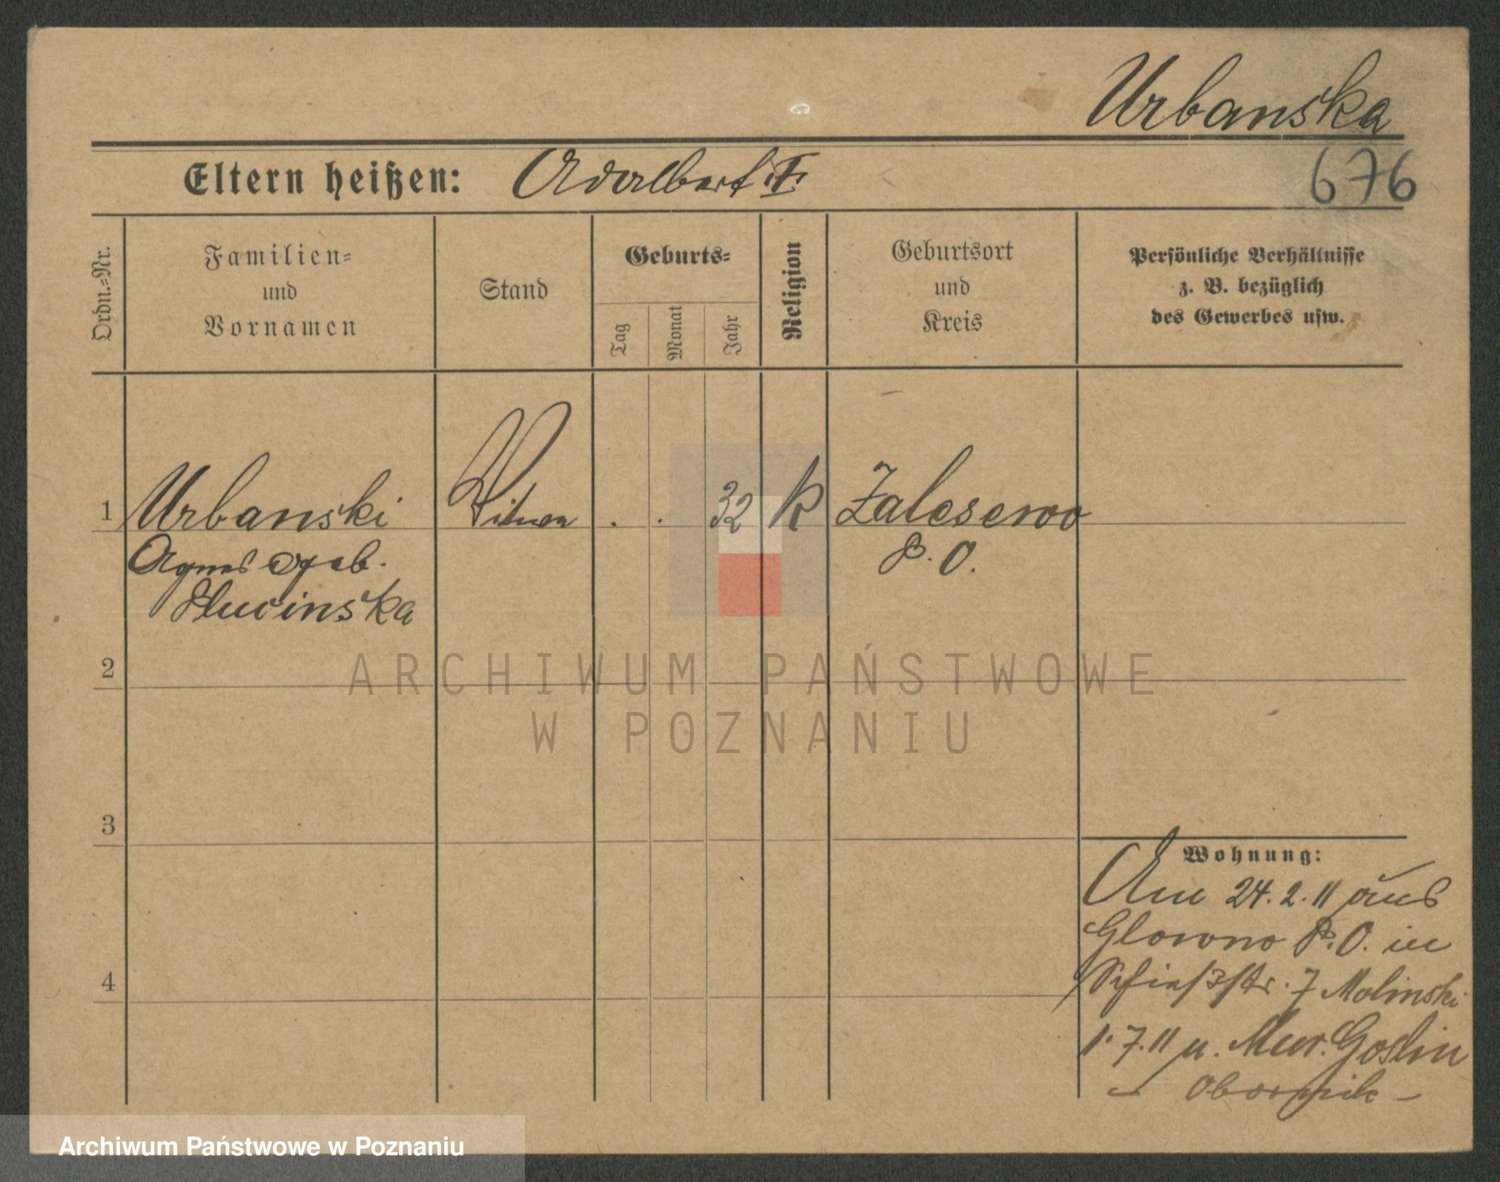 Urbanska
Eltern heißen: Adalbert †.
676
Ordn.-Nr.
Familien- und Vornamen
Stand
Geburts-
Tag
Monat
Jahr
Religion
Geburtsort und Kreis
Persönliche Verhältnisse
z. B. bezüglich
des Gewerbes usw.
1 Urbanski Witwe . . 32 k Zalesewo
Agnes geb. P. O.
2
3
Wohnung:
Am 24.2.11 aus
Glowno P. O. in
Schießstr. 7 Molinski
4
1.7.11 n. Mur. Goslin
Obornik
ARCHIWUM PAŃSTWOWE
W POZNANIU
Archiwum Państwowe w Poznaniu